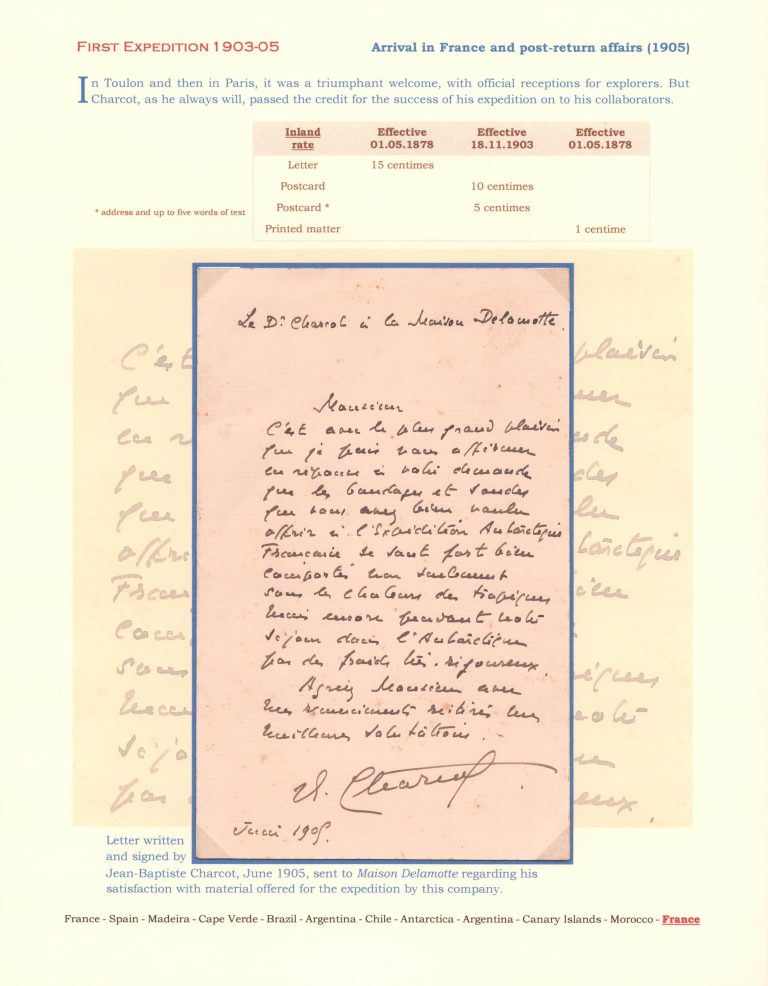 FIRST EXPEDITION 1903-05
Arrival in France and post-return affairs (1905)
In Toulon and then in Paris, it was a triumphant welcome, with official receptions for explorers. But
Charcot, as he always will, passed the credit for the success of his expedition on to his collaborators.
Inland rate Effective 01.05.1878 Effective 18.11.1903 Effective 01.05.1878
Letter 15 centimes
Postcard 10 centimes
* address and up to five words of text
Postcard * 5 centimes
Printed matter 1 centime
Le Dr Charcot à la Maison Delamotte.
Monsieur
C'est avec le plus grand plaisir
que je puis vous affirmer
en réponse à votre demande
que les bandages et sondes
que vous avez bien voulu
offrir à l'Expédition Antarctique
Française se sont fort bien
comportés non seulement
sous les chaleurs des tropiques
mais encore pendant notre
séjour dans l'Antarctique
par des froids très rigoureux.
Agréez Monsieur avec
mes remerciements réitérés mes
meilleures salutations.
J. Charcot
Juin 1905.
Letter written
and signed by
Jean-Baptiste Charcot, June 1905, sent to Maison Delamotte regarding his
satisfaction with material offered for the expedition by this company.
France - Spain - Madeira - Cape Verde - Brazil - Argentina - Chile - Antarctica - Argentina - Canary Islands - Morocco - France